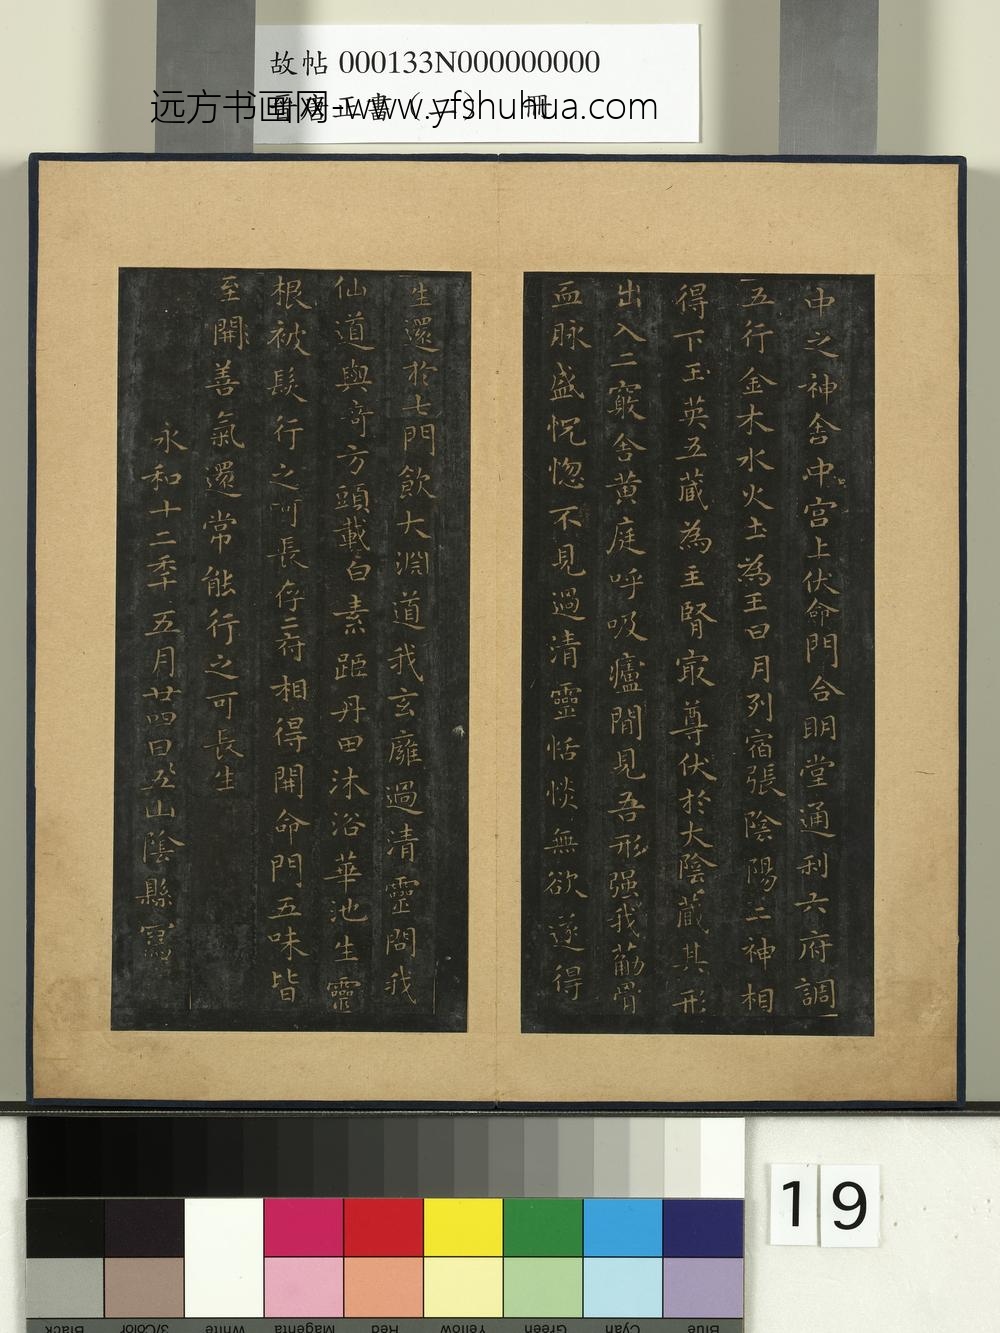 故帖 000133N000000000
远方书画网-www.yfshuhua.com
中之神舍中宮上伏命門合明堂通利六府調
五行金木水火土為王日月列宿張陰陽二神相
得下玉英五藏為主腎冣尊伏於大陰藏其形
出入二竅舍黄庭呼吸廬間見吾形强我筋骨
血脉盛怳惚不見過清靈恬惔無欲遂得
生還於七門飲大淵道我玄廱過清靈問我
仙道與奇方頭載白素距丹田沐浴華池生靈
根被髮行之可長存二府相得開命門五味皆
至開善氣還常能行之可長生
永和十二年五月廿四日五山陰縣寫
19
Black
3/Color
White
Magenta
Red
Yellow
Green
Cyan
Blue